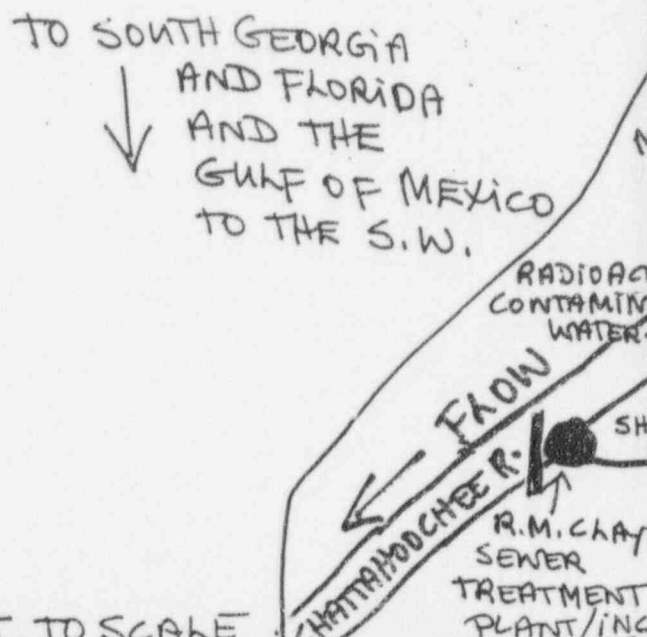 TO SOUTH GEORGIA
AND FLORIDA
AND THE
GULF OF MEXICO
TO THE S.W.
RADIOACT
CONTAMIN
WATER
FLOW
CHATTAHOOCHEE R.
SH
R.M. CLAY
SEWER
TREATMENT
PLANT/INC
TO SCALE